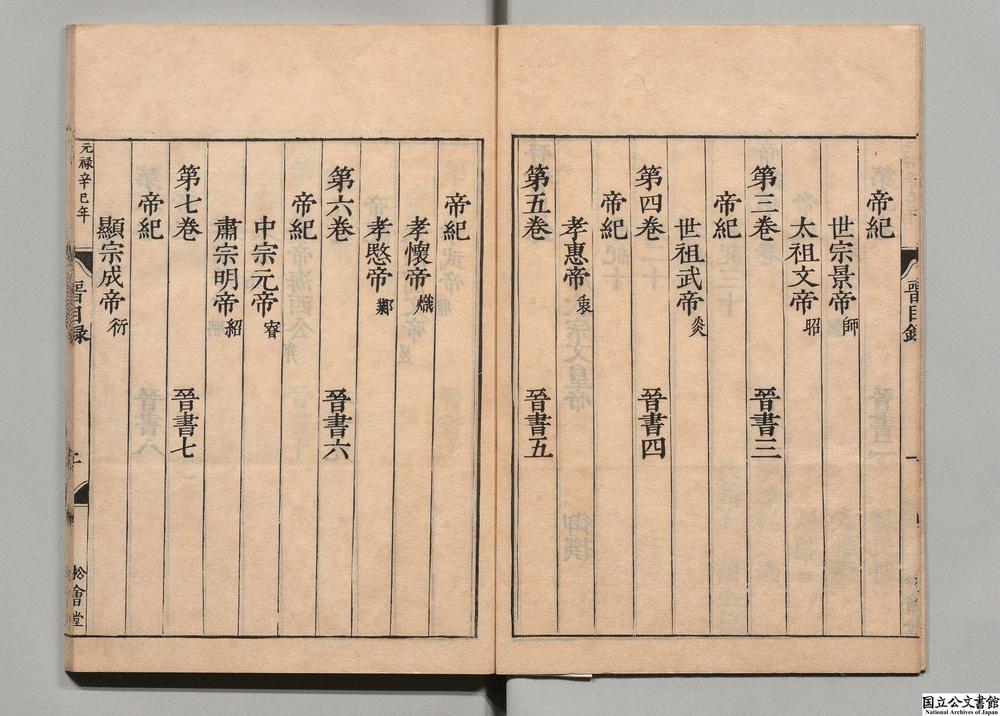 帝紀
世宗景帝 師
太祖文帝 昭
第三卷 晉書三
帝紀
世祖武帝 炎
第四卷 晉書四
帝紀
孝惠帝 衷
第五卷 晉書五
晉目錄
一
帝紀
孝懷帝 熾
孝愍帝 鄴
第六卷 晉書六
帝紀
中宗元帝 睿
肅宗明帝 紹
第七卷 晉書七
帝紀
顯宗成帝 衍
元禄辛巳年
晉目録
松會堂
国立公文書館
National Archives of Japan